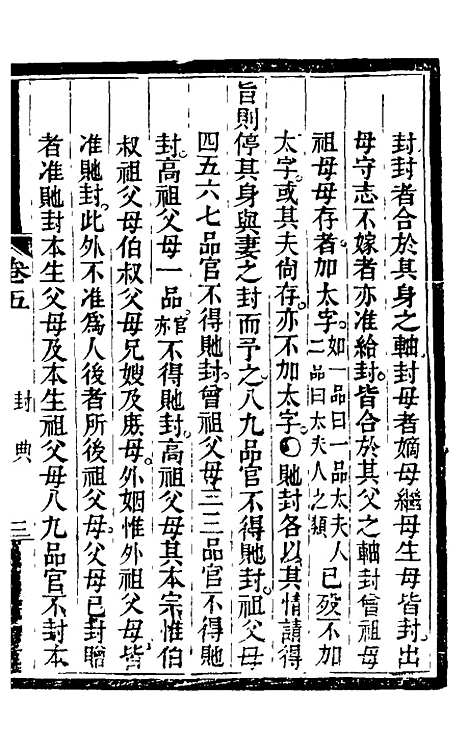 封封者合於其身之軸封母者嫡母繼母生母皆封出
母守志不嫁者亦准給封。皆合於其父之軸封曾祖母
祖母母存者加太字。如一品曰一品太夫人二品曰太夫人之類已歿不加
太字。或其夫尙存。亦不加太字。貤封各以其情請得
旨則停其身與妻之封而予之。八九品官不得貤封。祖父母
四五六七品官不得貤封。曾祖父母。二三品官不得貤
封。高祖父母一品官亦不得貤封。高祖父母其本宗惟伯
叔祖父母伯叔父母兄嫂及庶母。外姻惟外祖父母皆
准貤封。此外不准爲人後者所後祖父母。父母已封贈
者准貤封本生父母及本生祖父母八九品官不封本
卷五
封典
三